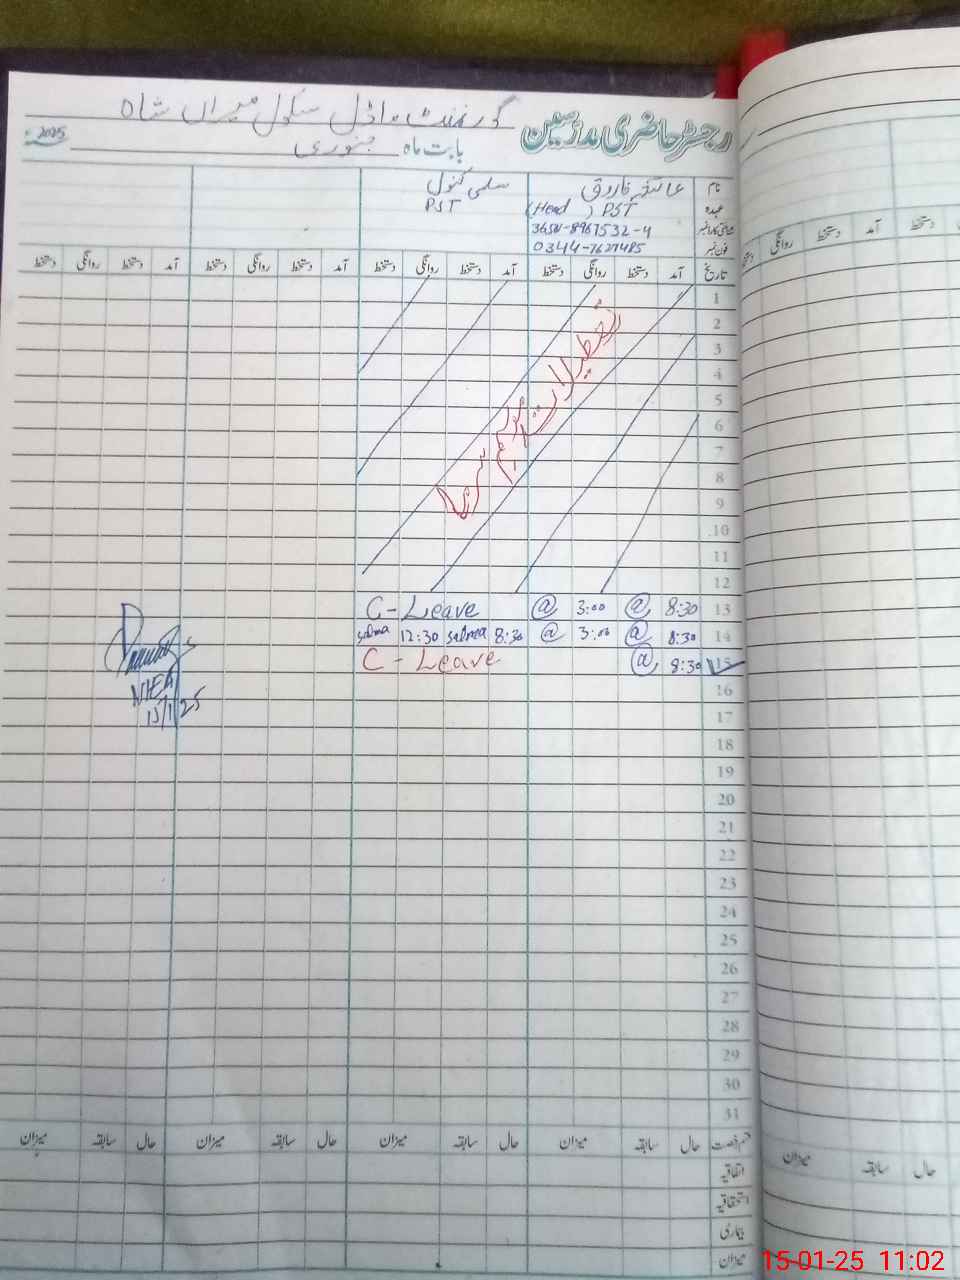 رجسٹر حاضری مدرسین گورنمنٹ ماڈل سکول میراں شاہ
بابت ماہ جنوری 2025ء
نام عائشہ فاروق سلمی کنول
عہدہ PST (Head) PST
شناختی کارڈ نمبر
فون نمبر 0344-7627485
تاریخ آمد دستخط روانگی دستخط آمد دستخط روانگی دستخط آمد دستخط روانگی دستخط آمد دستخط روانگی دستخط
1
2
3
4
5
6
7
8
9
10
11
12
تعطیلات موسم سرما
13 8:30 @ 3:00 @ C-Leave
14 8:30 @ 3:00 @ 8:30 salma 12:30 salma
15 8:30 @ C-Leave
15/1/25
16
17
18
19
20
21
22
23
24
25
26
27
28
29
30
31
قسم رخصت حال سابقہ میزان حال سابقہ میزان حال سابقہ میزان حال سابقہ میزان
اتفاقیہ
استحقاقیہ
بیماری
میزان
دستخط روانگی دستخط آمد دستخط
میزان سابقہ حال
15-01-25 11:02